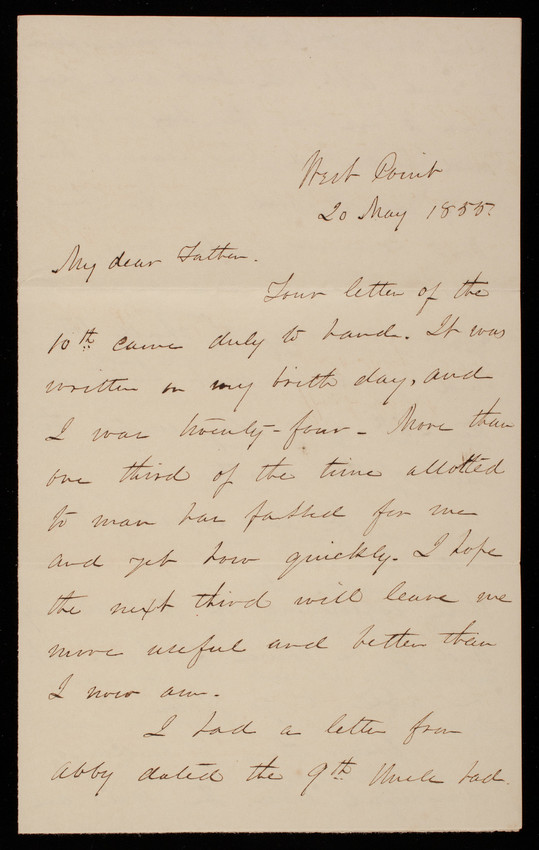 West Point
20 May 1855.
My dear Father.
Your letter of the
10th came duly to hand. It was
written on my birth day, and
I was twenty-four - More than
one third of the time allotted
to man has passed for me
and yet how quickly. I hope
the next third will leave me
more useful and better than
I now am.
I had a letter from
Abby dated the 9th. Uncle had